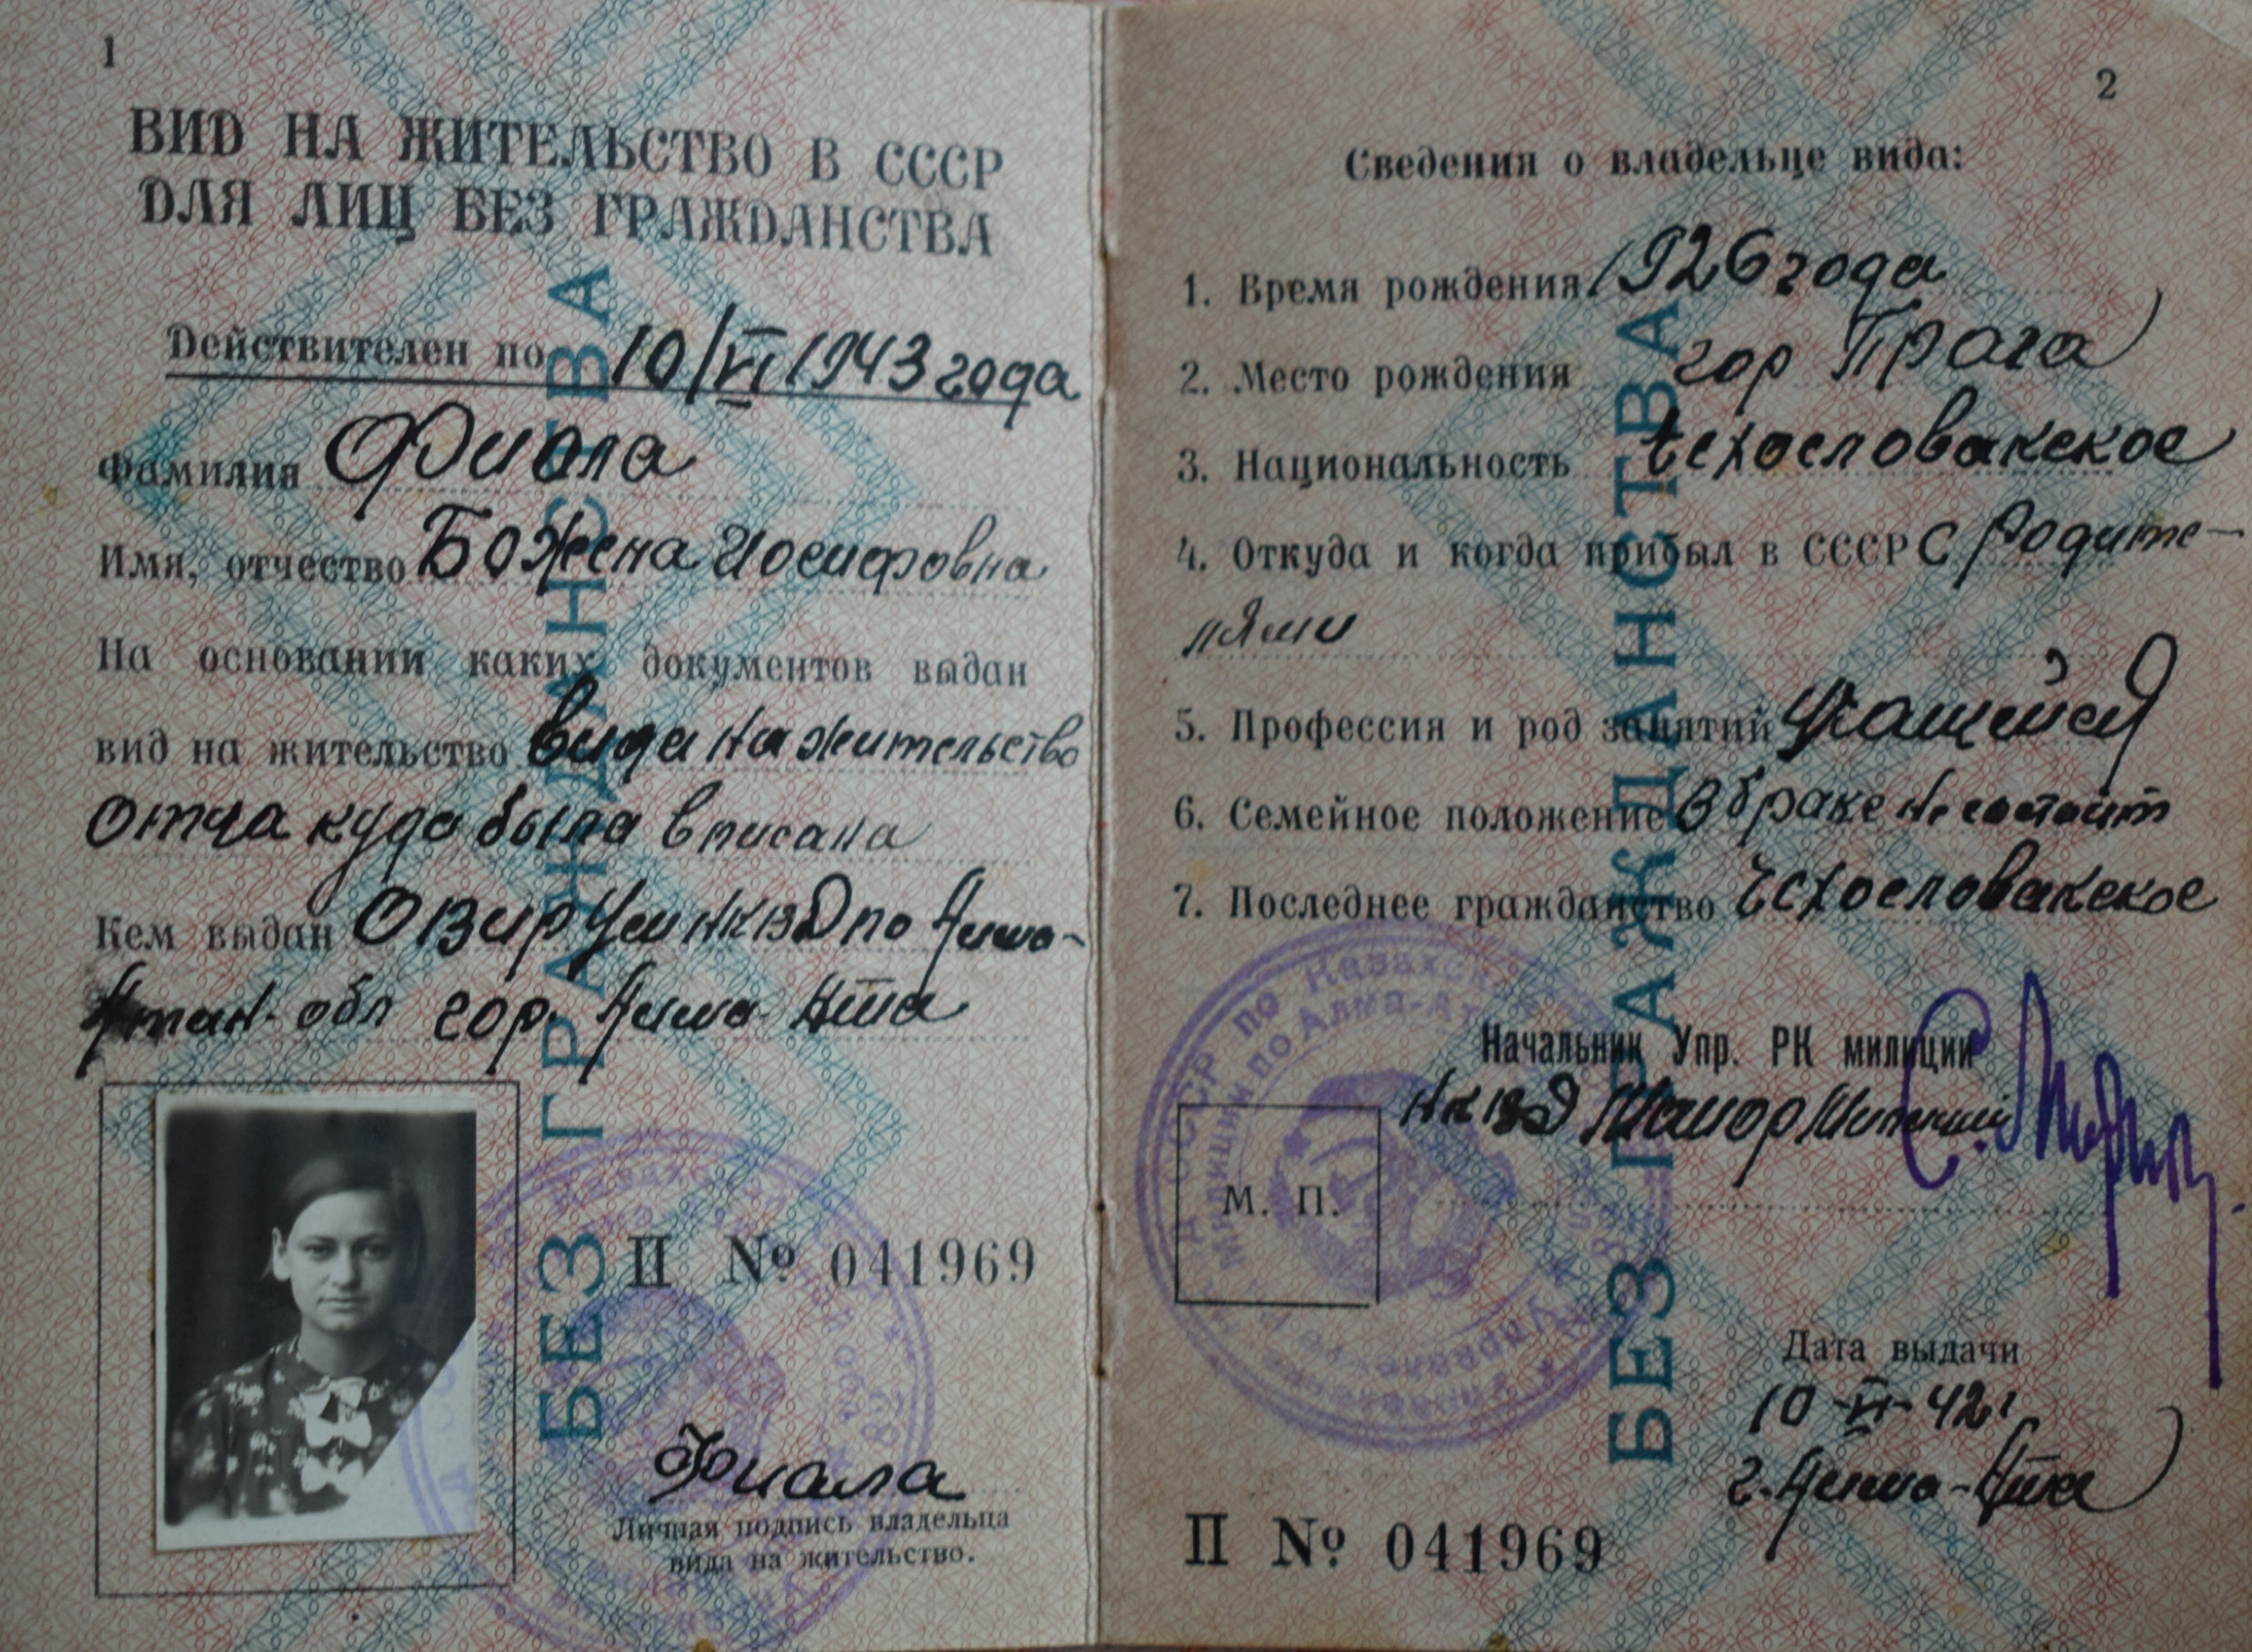 1
ВИД НА ЖИТЕЛЬСТВО В СССР
ДЛЯ ЛИЦ БЕЗ ГРАЖДАНСТВА
Действителен по 10/VI 1943 года
Фамилия Фиала
Имя, отчество Божена Иосифовна
На основании каких документов выдан
вид на жительство вида на жительство
отца куда была вписана
Кем выдан ОВИР Упр НКВД по Алма-
Атин. обл гор. Алма-Ата
БЕЗ ГРАЖДАНСТВА
П № 041969
Фиала
Личная подпись владельца
вида на жительство.
2
Сведения о владельце вида:
1. Время рождения 1926 года
2. Место рождения гор Прага
3. Национальность Чехословакское
4. Откуда и когда прибыл в СССР С родите-
лями
5. Профессия и род занятий Учащийся
6. Семейное положение В браке не состоит
7. Последнее гражданство Чехословакское
Начальник Упр. РК милиции
НКВД Майор Милиции
М. П.
БЕЗ ГРАЖДАНСТВА
Дата выдачи
10-VI-42г.
г. Алма-Ата
П № 041969